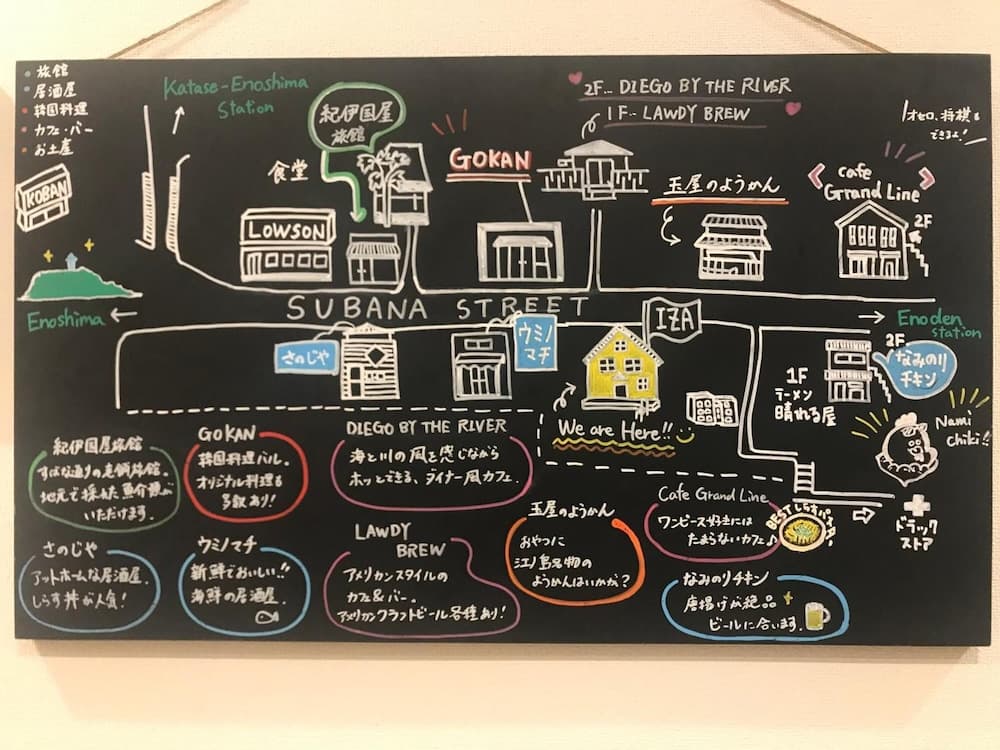 ・旅館
・居酒屋
・韓国料理
・カフェ・バー
・お土産
KOBAN
Katase-Enoshima
Station
紀伊国屋
旅館
食堂
LOWSON
GOKAN
2F… DIEGO BY THE RIVER
1F… LAWDY BREW
玉屋のようかん
オセロ、将棋も
できるよ!
cafe
Grand Line
2F
Enoshima ←
SUBANA STREET
→ Enoden
station
さのじや
ウミノ
マチ
IZA
We are Here!!
2F
なみのり
チキン
1F
ラーメン
晴れる屋
Nami
chiki!!
ドラック
ストア
紀伊国屋旅館
すばな通りの老舗旅館。
地元で採れた魚介類が
いただけます。
GOKAN
韓国料理バル。
オリジナル料理も
多数あり!
DIEGO BY THE RIVER
海と川の風を感じながら
ホッとできる、ダイナー風カフェ。
さのじや
アットホームな居酒屋。
しらす丼が人気!
ウミノマチ
新鮮でおいしい!!
海鮮の居酒屋。
LAWDY
BREW
アメリカンスタイルの
カフェ&バー。
アメリカンクラフトビール各種あり!
玉屋のようかん
おやつに
江ノ島名物の
ようかんはいかが?
Cafe Grand Line
ワンピース好きには
たまらないカフェ♪
BESTしらすパスタ!
なみのりチキン
唐揚げが絶品
ビールに合います。